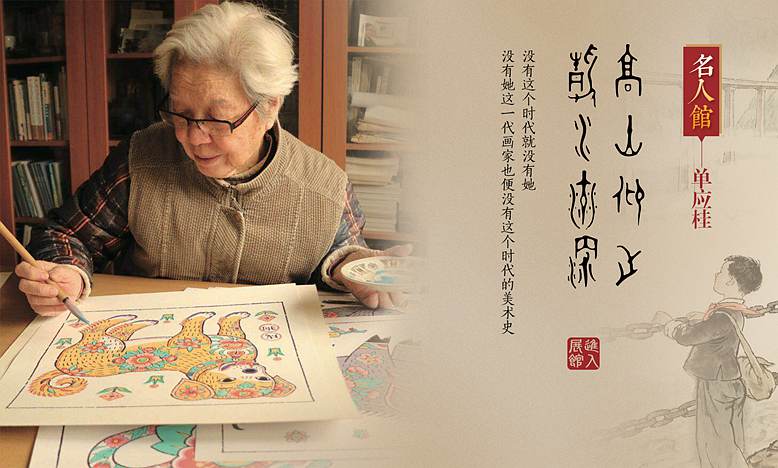 名人館
单应桂
高山仰止
没有这个时代就没有她
没有她这一代画家也便没有这个时代的美术史
進入
展館